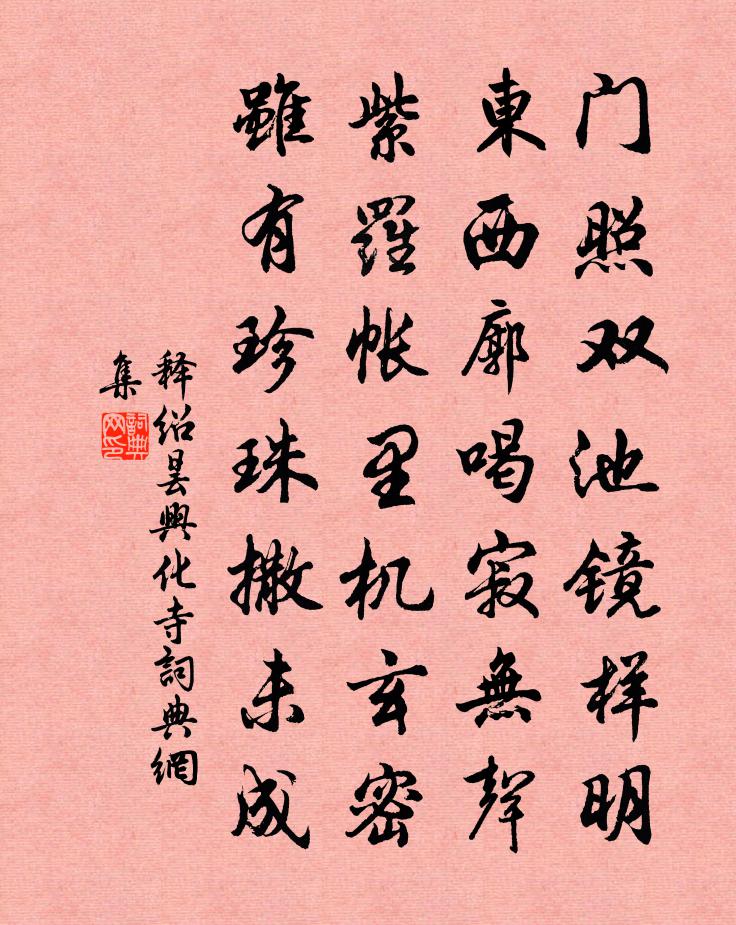 门照双池镜样明
東西廓喝寂無聲
紫羅帐里机玄密
雖有珍珠撒未成
释绍昙興化寺詞典網
集
詞典网印